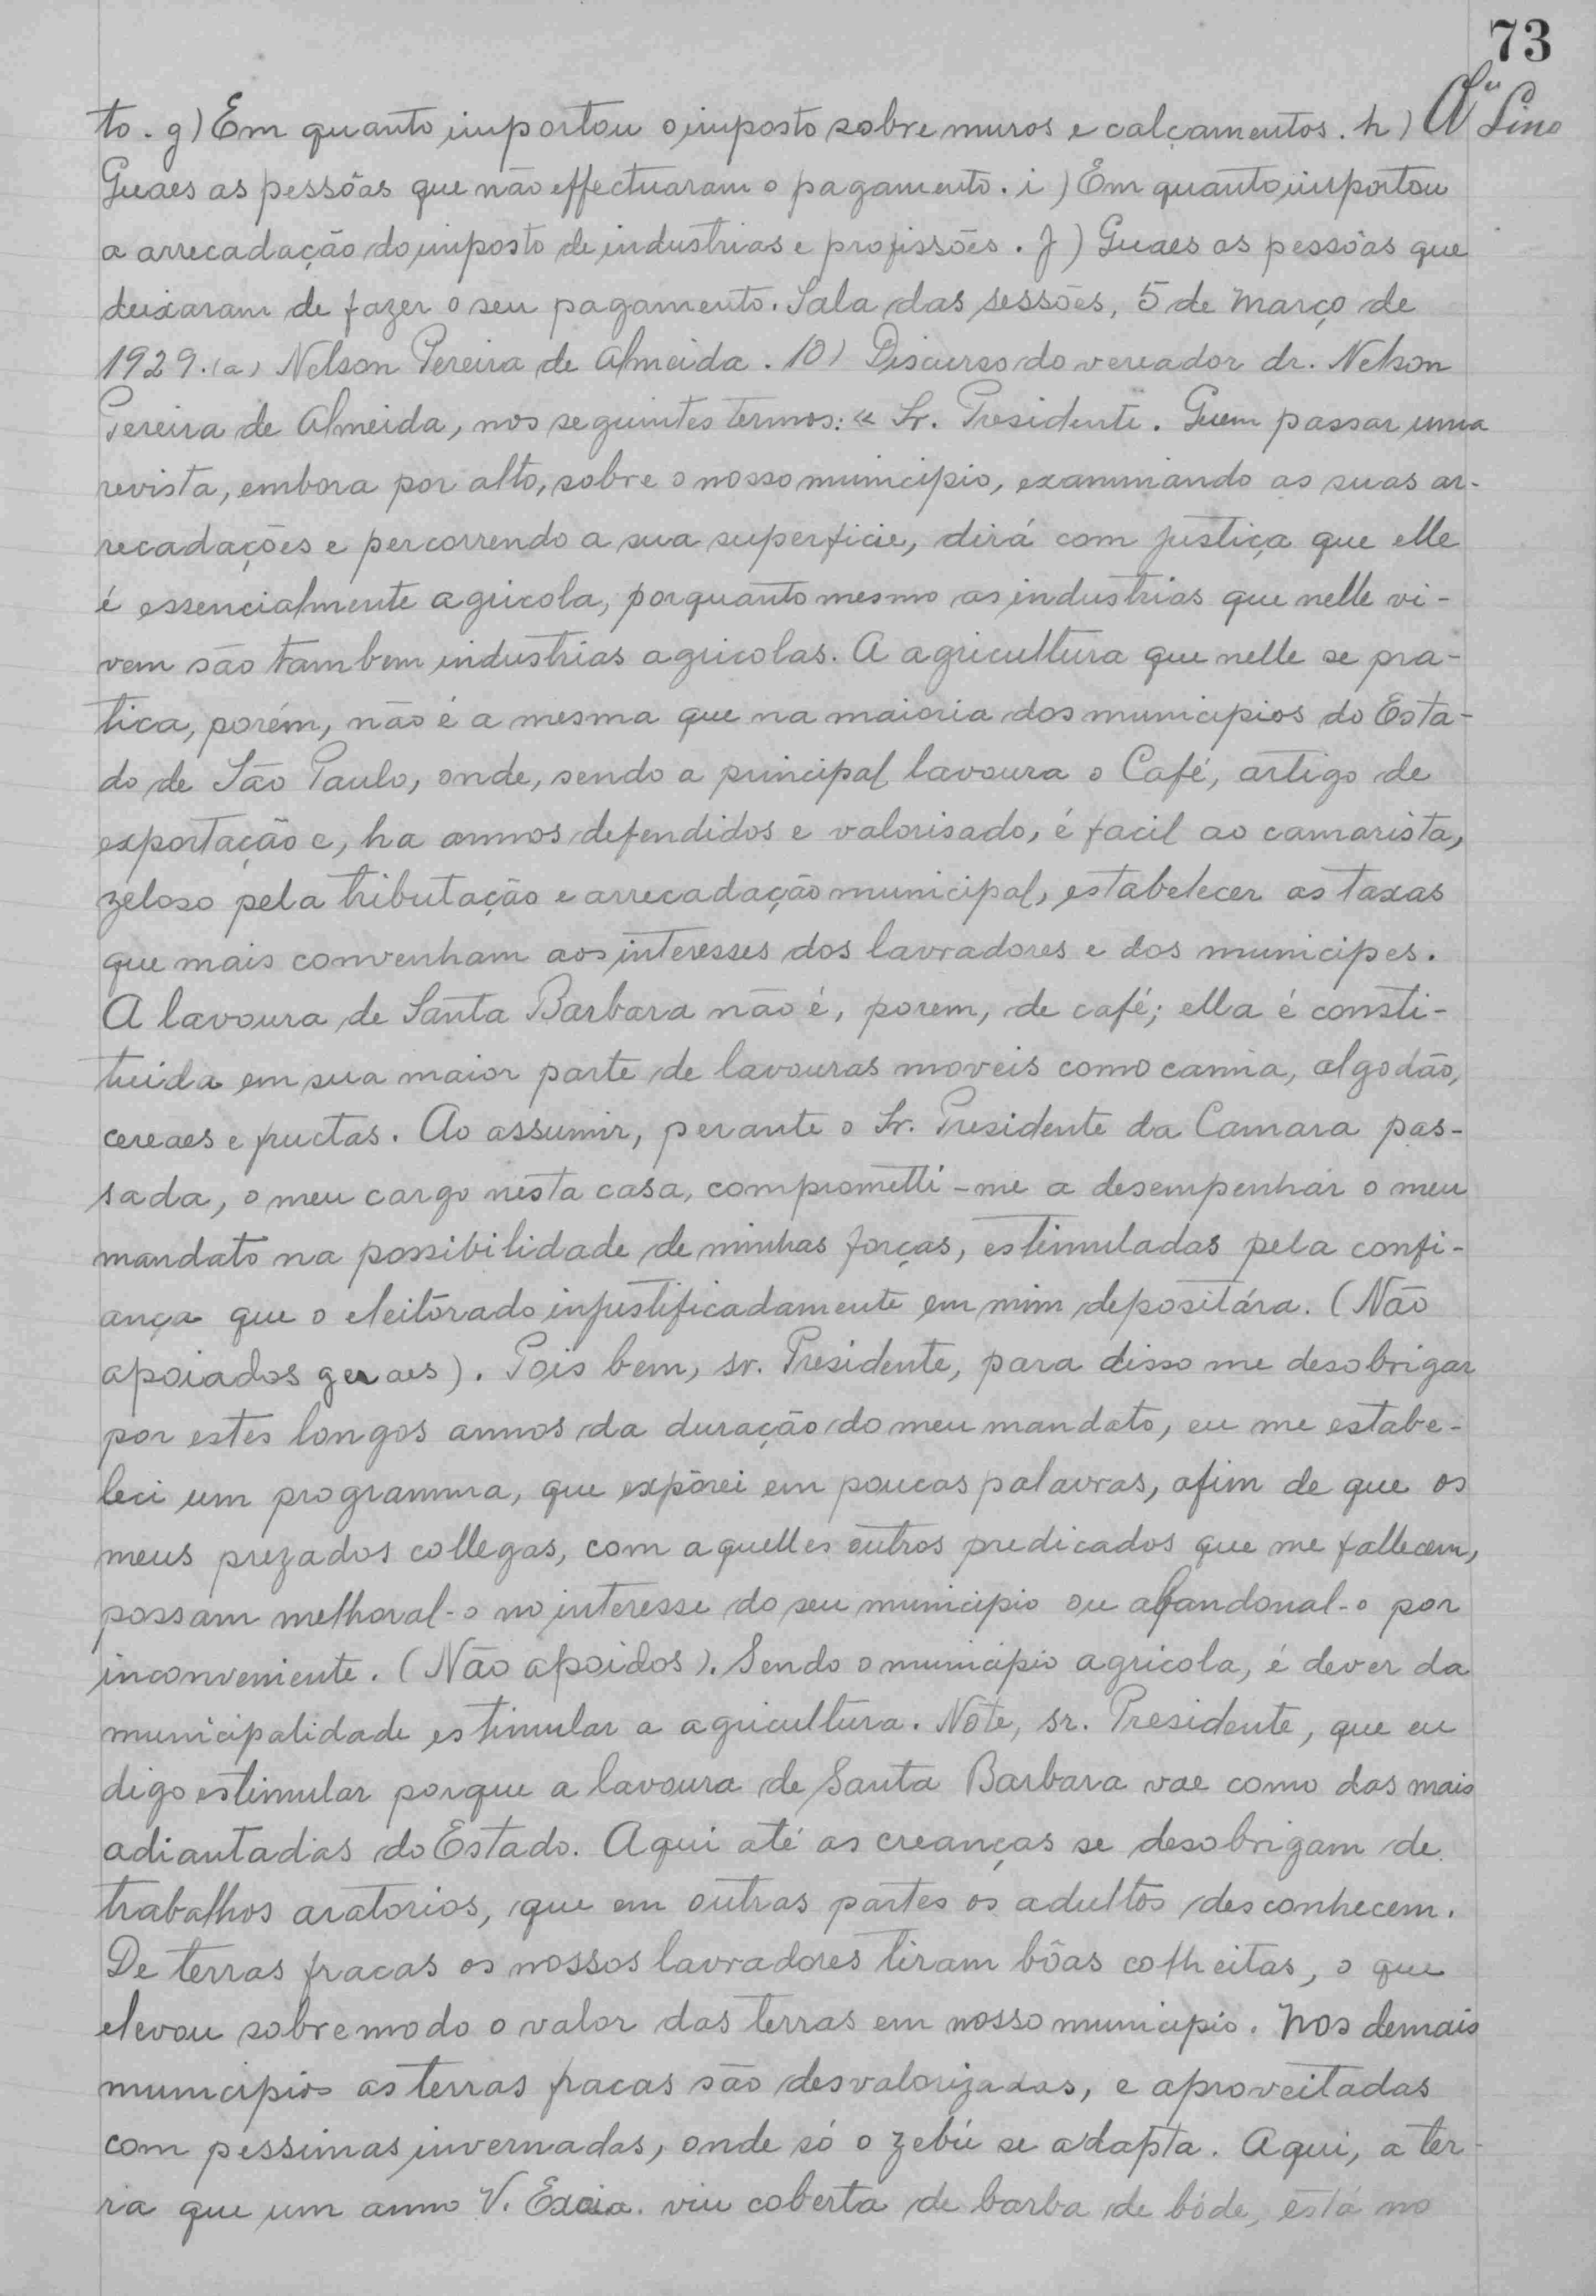 73
to. g) Em quanto importou o imposto sobre muros e calçamentos. h)
Lino
Quaes as pessôas que não effectuaram o pagamento. i) Em quanto importou
a arrecadação do imposto de industrias e profissões. J) Quaes as pessôas que
deixaram de fazer o seu pagamento. Sala das sessões, 5 de Março de
1929. (a) Nelson Pereira de Almeida. 10) Discurso do vereador dr. Nelson
Pereira de Almeida, nos seguintes termos: « Sr. Presidente. Quem passar uma
revista, embora por alto, sobre o nosso municipio, examinando as suas ar-
recadações e percorrendo a sua superficie, dirá com justiça que elle
é essencialmente agricola, porquanto mesmo as industrias que nelle vi-
vem são tambem industrias agricolas. A agricultura que nelle se pra-
tica, porém, não é a mesma que na maioria dos municipios do Esta-
do de São Paulo, onde, sendo a principal lavoura o Café, artigo de
exportação e, ha annos defendidos e valorisado, é facil ao camarista,
zeloso pela tributação e arrecadação municipal, estabelecer as taxas
que mais convenham aos interesses dos lavradores e dos municipes.
A lavoura de Santa Barbara não é, porem, de café; ella é consti-
tuida em sua maior parte de lavouras moveis como canna, algodão,
cereaes e fructas. Ao assumir, perante o Sr. Presidente da Camara pas-
sada, o meu cargo nesta casa, comprometti-me a desempenhar o meu
mandato na possibilidade de minhas forças, estimuladas pela confi-
ança que o eleitorado injustificadamente em mim depositára. (Não
apoiados geraes). Pois bem, sr. Presidente, para disso me desobrigar
por estes longos annos da duração do meu mandato, eu me estabe-
leci um programma, que expôrei em poucas palavras, afim de que os
meus prezados collegas, com aquelles outros predicados que me fallecem,
possam melhoral-o no interesse do seu municipio ou abandonal-o por
inconveniente. (Não apoidos). Sendo o municipio agricola, é dever da
municipalidade estimular a agricultura. Note, sr. Presidente, que eu
digo estimular porque a lavoura de Santa Barbara vae como das mais
adiantadas do Estado. Aqui até as creanças se desobrigam de
trabalhos aratorios, que em outras partes os adultos desconhecem.
De terras fracas os nossos lavradores tiram bôas colheitas, o que
elevou sobremodo o valor das terras em nosso municipio. Nos demais
municipios as terras fracas são desvalorizadas, e aproveitadas
com pessimas invernadas, onde só o zebú se adapta. Aqui, a ter-
ra que um anno V. Excia. viu coberta de barba de bóde, está no